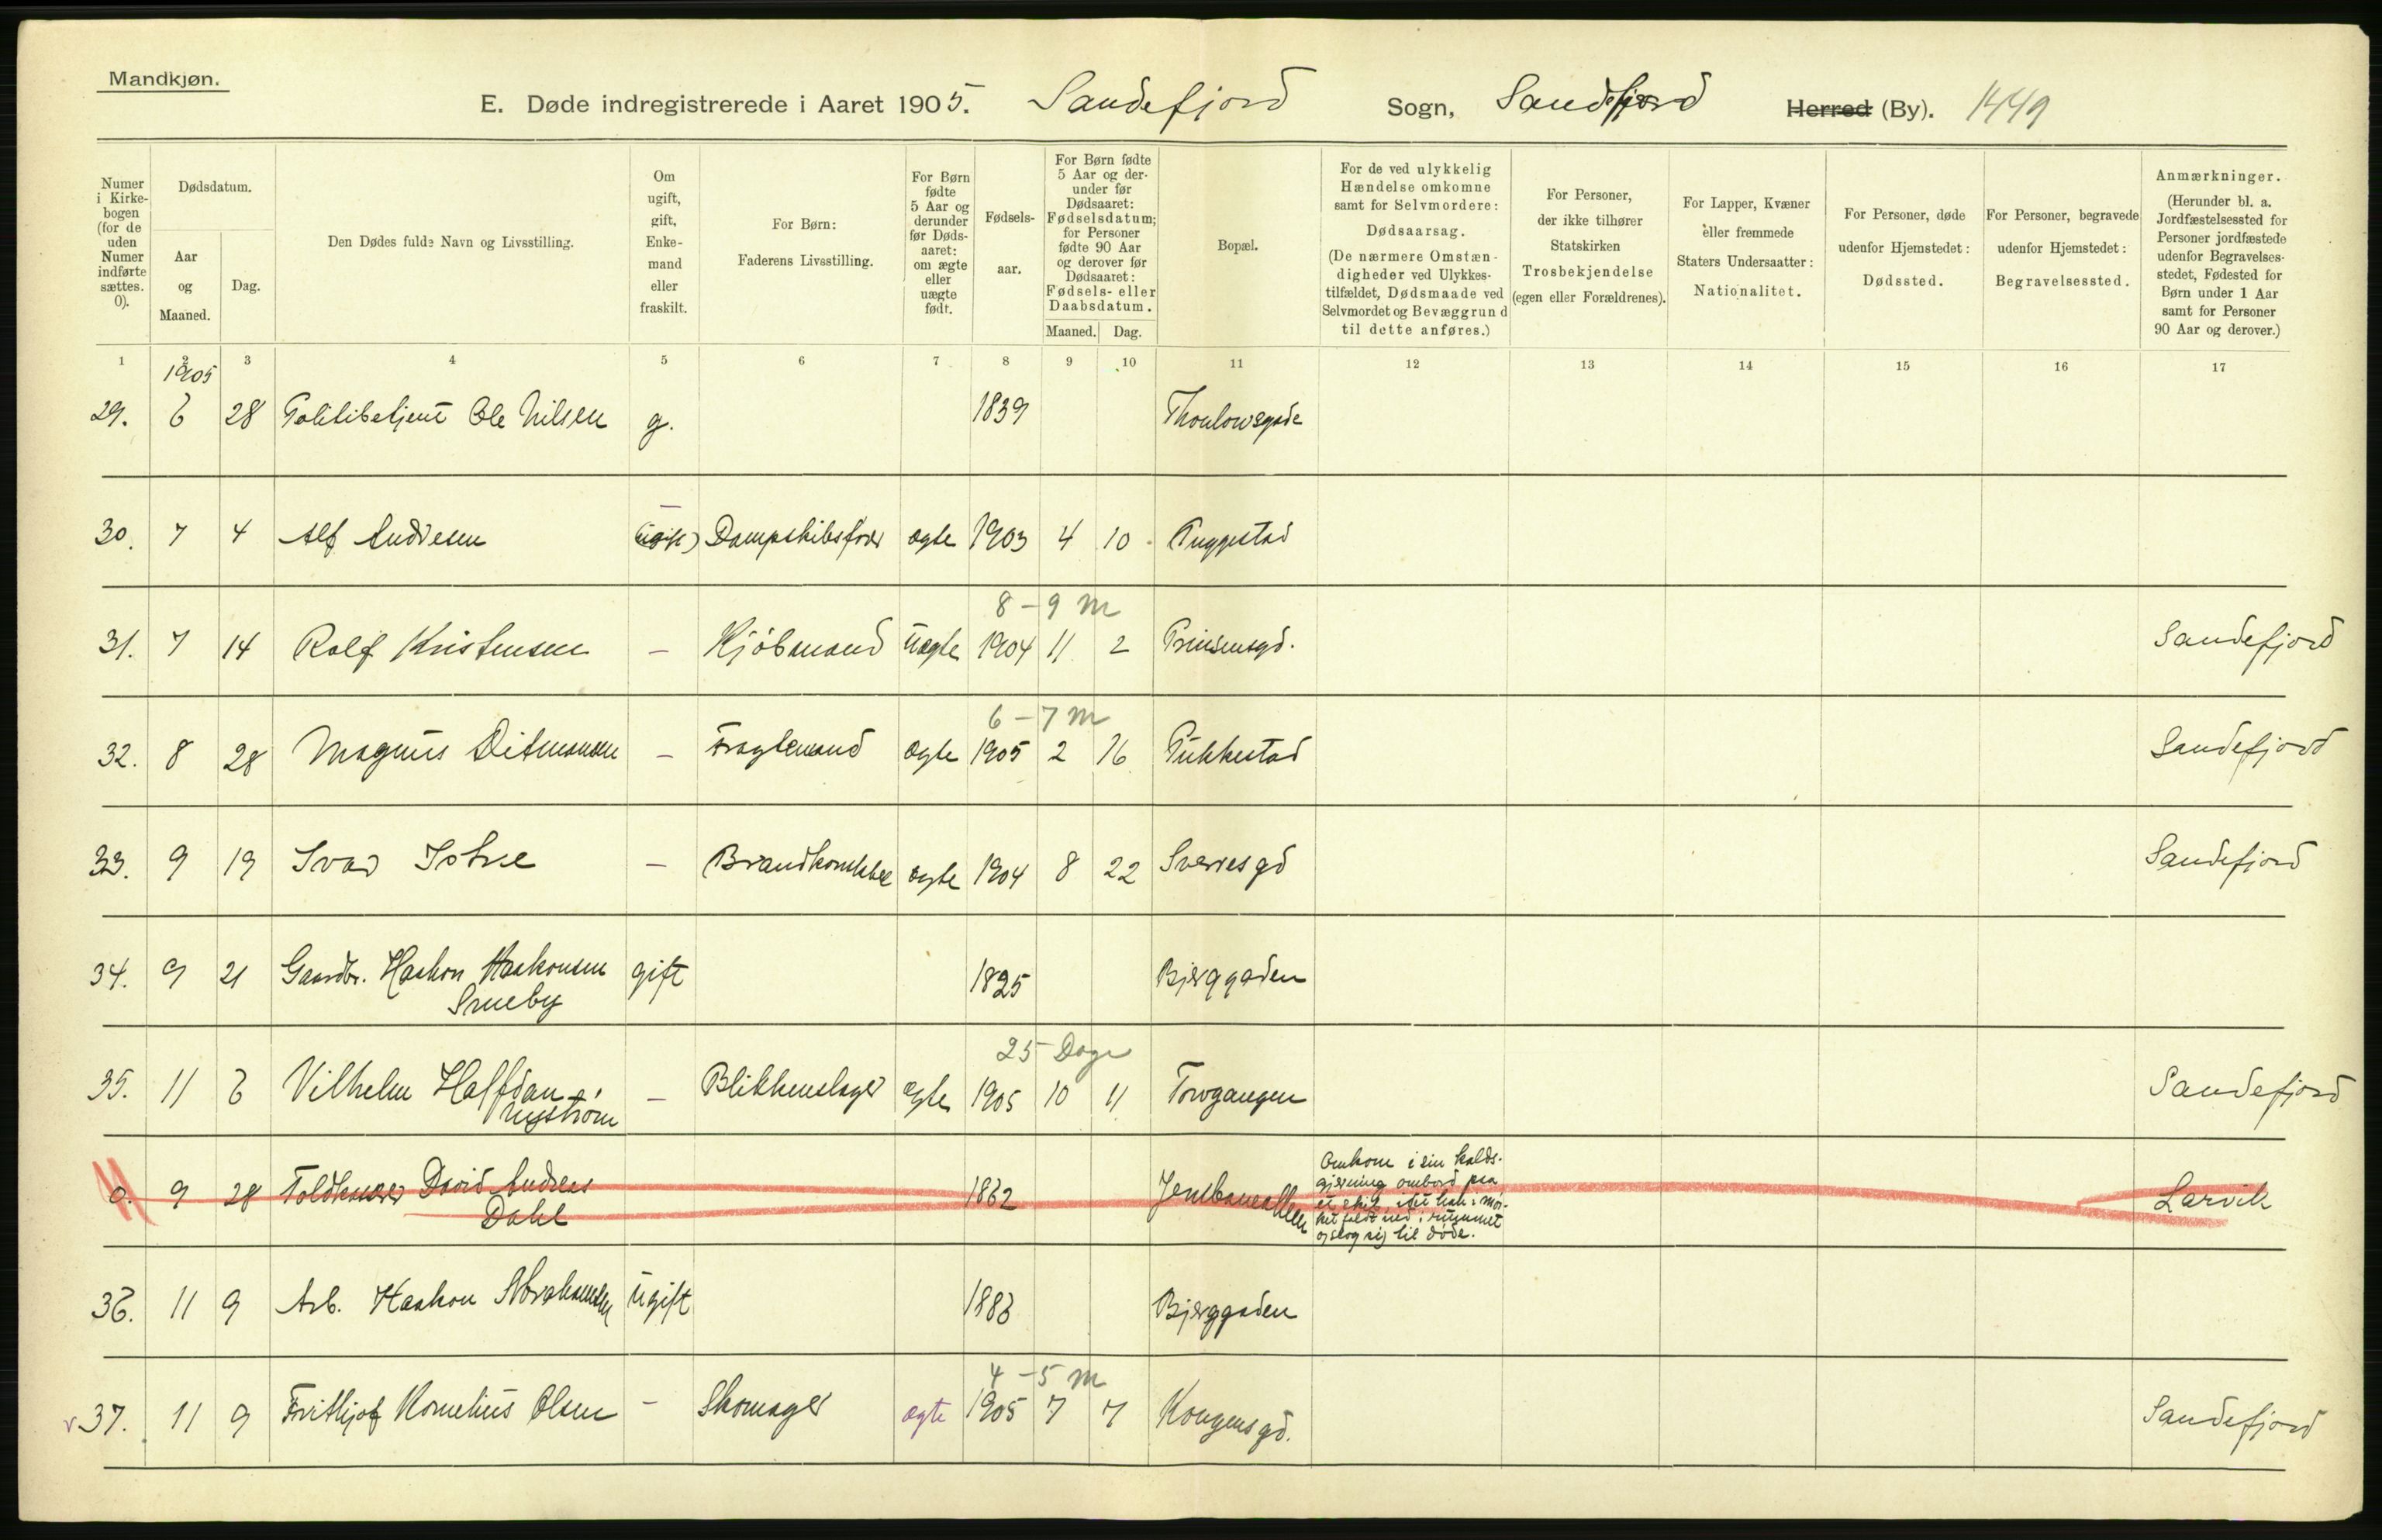 Mandkjøn.
E. Døde indregistrerede i Aaret 1905. Sandefjord Sogn, Sandefjord Herred (By). 1449
Numer i Kirkebogen (for de uden Numer indførte sættes. 0).
Dødsdatum.
Aar og Maaned.
Dag.
Den Dødes fulde Navn og Livsstilling.
Om ugift, gift, Enkemand eller fraskilt.
For Børn: Faderens Livsstilling.
For Børn fødte 5 Aar og derunder før Dødsaaret: om ægte eller uægte født.
Fødselsaar.
For Børn fødte 5 Aar og derunder før Dødsaaret: Fødselsdatum; for Personer fødte 90 Aar og derover før Dødsaaret: Fødsels- eller Daabsdatum.
Maaned. Dag.
Bopæl.
For de ved ulykkelig Hændelse omkomne samt for Selvmordere: Dødsaarsag. (De nærmere Omstændigheder ved Ulykkestilfældet, Dødsmaade ved Selvmordet og Bevæggrund til dette anføres.)
For Personer, der ikke tilhører Statskirken Trosbekjendelse (egen eller Forældrenes).
For Lapper, Kvæner eller fremmede Staters Undersaatter: Nationalitet.
For Personer, døde udenfor Hjemstedet: Dødssted.
For Personer, begravede udenfor Hjemstedet: Begravelsessted.
Anmærkninger. (Herunder bl. a. Jordfæstelsessted for Personer jordfæstede udenfor Begravelsesstedet, Fødested for Børn under 1 Aar samt for Personer 90 Aar og derover.)
1 2 3 4 5 6 7 8 9 10 11 12 13 14 15 16 17
1905
29. 6 28 Politibetjent Ole Nilsen g. 1839 Thoulowsgade
30. 7 4 Alf Andresen (ugift) Dampskibsfører ægte 1903 4 10 Puggestad
8-9 m
31. 7 14 Rolf Kristensen - Kjøbmand uægte 1904 11 2 Prinsensgd. Sandefjord
6-7 m
32. 8 28 Magnus Ditmansen - Fragtemand ægte 1905 2 16 Pukkestad Sandefjord
33. 9 19 Ivar - ægte 1904 8 22 Sverresgd Sandefjord
34. 9 21 Gaardbr. Haakon Haakonsen gift 1825 Bjerggaden
25 Dage
35. 11 6 Vilhelm Halfdan Nystrøm - Blikkenslager ægte 1905 10 11 Torvgangen Sandefjord
0. 9 28 David Andreas Dahl 1862 Jernbanealleen Omkom i sin kalds-
gjerning ombord paa
et skib, idet han i mør-
ket faldt ned i rummet
og slog sig til døde. Larvik
36. 11 9 Arb. Haakon Abrahamsen ugift 1886 Bjerggaden
4-5 m
v 37. 11 9 Frithjof Kornelius Olsen - Skomager ægte 1905 7 7 Kongensgd. Sandefjord